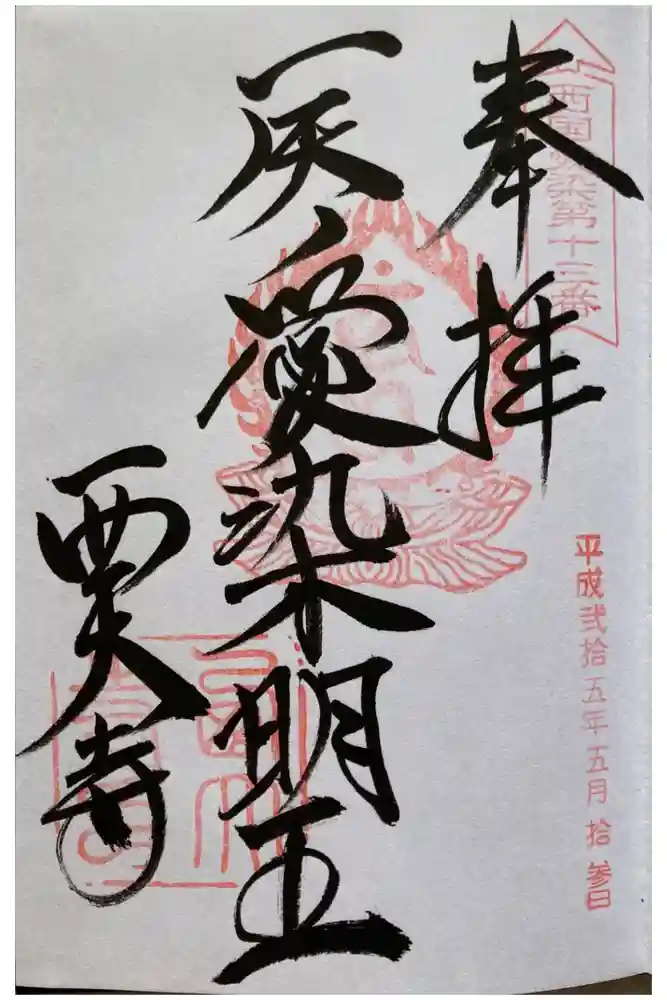 西国愛染第十三番
奉拝
平成弐拾五年五月拾参日
愛染明王
西大寺